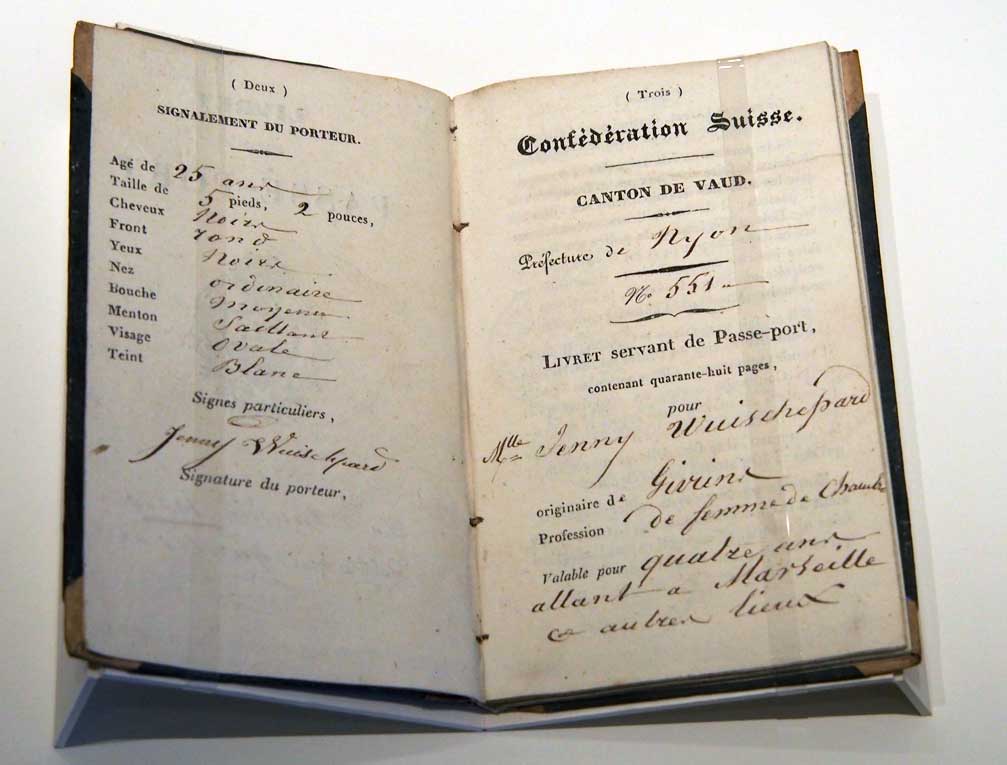 ( Deux )
SIGNALEMENT DU PORTEUR.
Agé de 25 ans
Taille de 5 pieds, 2 pouces,
Cheveux Noirs
Front rond
Yeux Noirs
Nez ordinaire
Bouche Moyenne
Menton Saillant
Visage Ovale
Teint Blanc
Signes particuliers,
Jenny Wuischpard
Signature du porteur,
( Trois )
Confédération Suisse.
CANTON DE VAUD.
Préfecture de Nyon
No 551
LIVRET servant de Passe-port,
contenant quarante-huit pages,
pour
Mlle Jenny Wuischepard
originaire de Givrins
Profession de femme de Chambre
Valable pour quatre ans
allant a Marseille
et autres lieux